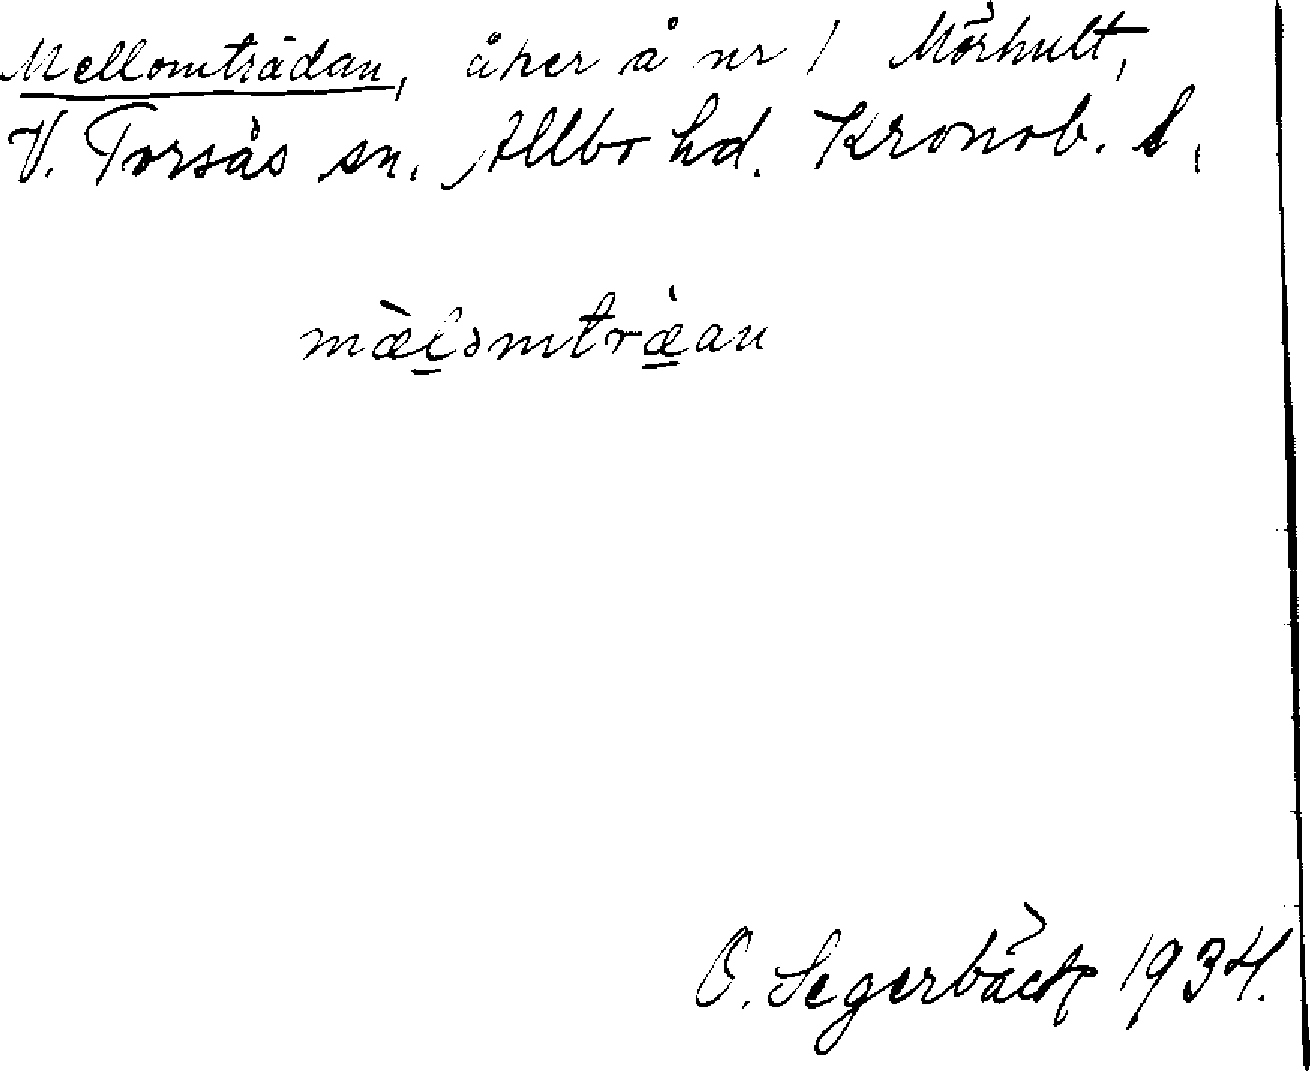 Mellomträdan, åker å nr 1 Mörhult,
V. Torsås sn. Allbo hd. Kronob. l.
mæ̀lomtræ̀an
O. Segerbäck 1934.